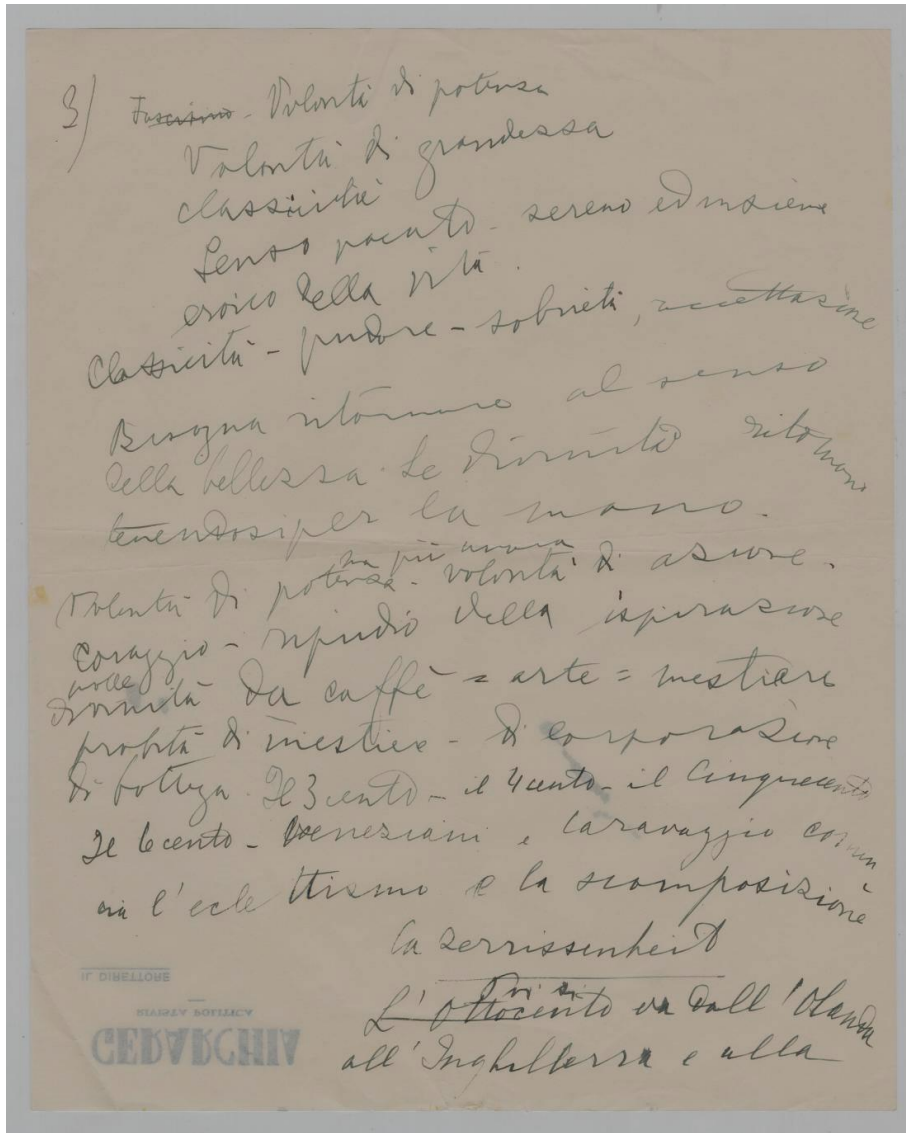 3) Fascismo - Volontà di potenza
Volontà di grandezza
classicità
Senso pacato - sereno ed insieme
eroico della vita.
Classicità - pudore - sobrietà, accettazione
Bisogna ritornare al senso
della bellezza. Le divinità ritornano
tenendosi per la mano.
ma più ancora
Volontà di potenza - volontà di azione -
coraggio - ripudio della ispirazione
divinità da caffè = arte = mestiere
probità di mestiere - di corporazione
di bottega. Il 3cento - il 4cento - il Cinquecento
Il 6cento - Veneziani e Caravaggio comin
cia l'eclettismo e la scomposizione
la Zerrissenheit
Poi si
L'Ottocento va dall'Olanda
all'Inghilterra e alla
IL DIRETTORE
RIVISTA POLITICA
GERARCHIA